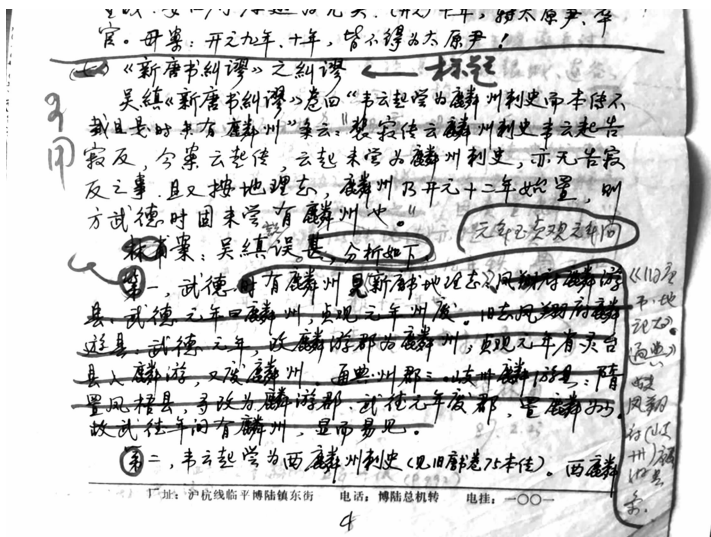 官。毋案：开元九年、十年，皆不得为太原尹！
(七)《新唐书纠谬》之纠谬 ← 标题
吴缜《新唐书纠谬》卷四“韦云起尝为麟州刺史而本传不
载且是时未有麟州”条云："裴寂传云麟州刺史韦云起告
寂反，今案云起传，云起未尝为麟州刺史，亦无告寂
反之事，且又按地理志，麟州乃开元十二年始置，则
方武德时固未尝有麟州也。"
案：吴缜误甚，分析如下：
元年至贞观元年间
第一，武德时有麟州见《新唐书地理志》凤翔府麟游
县：武德元年曰麟州，贞观元年州废。旧志凤翔府麟
游县：武德元年，改麟游郡为麟州，贞观元年省灵台
县入麟游，又废麟州。通典州郡三岐州麟游县：隋
置凤栖县，寻改为麟游郡，武德元年废郡，置麟州。
故武德年间有麟州，显而易见。
《旧唐书·地理志》《通典》
凤翔府(岐州)麟游县条。
第二，韦云起尝为西麟州刺史(见旧唐书卷75本传)。西麟
厂址：沪杭线临平博陆镇东街 电话：博陆总机转 电挂：一〇〇一
4